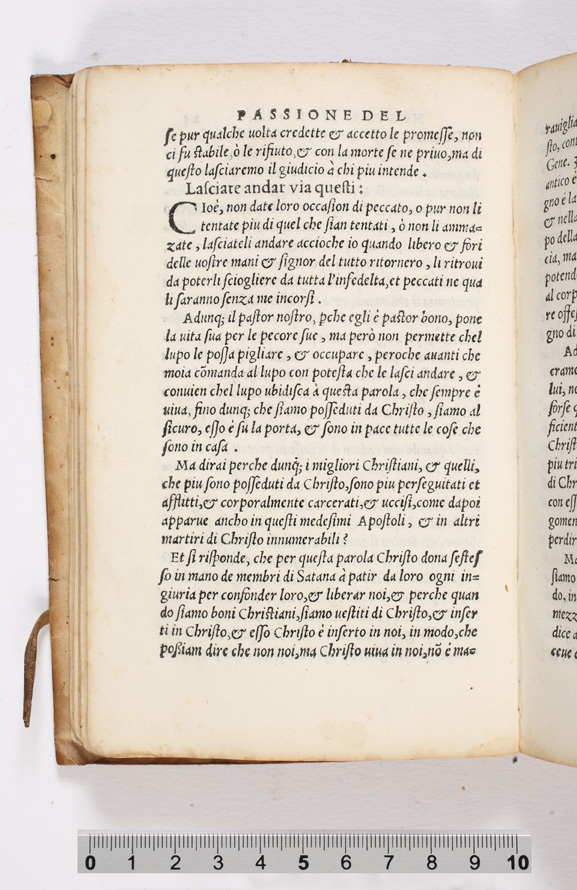 PASSIONE DEL
se pur qualche uolta credette & accetto le promesse, non
ci fu stabile, ò le rifiuto, & con la morte se ne priuo, ma di
questo lasciaremo il giudicio à chi piu intende.
Lasciate andar via questi:
CIoé, non date loro occasion di peccato, o pur non li
tentate piu di quel che sian tentati, ò non li amma-
zate, lasciateli andare accioche io quando libero & fori
delle uostre mani & signor del tutto ritornero, li ritroui
da poterli sciogliere da tutta l'infedelta, et peccati ne qua
li saranno senza me incorsi.
Adunq; il pastor nostro, pche egli è pastor bono, pone
la uita sua per le pecore sue, ma però non permette chel
lupo le possa pigliare, & occupare, peroche auanti che
moia cõmanda al lupo con potesta che le lasci andare, &
conuien chel lupo ubidisca à questa parola, che sempre è
uiua, fino dunq; che siamo posseduti da Christo, siamo al
sicuro, esso è su la porta, & sono in pace tutte le cose che
sono in casa.
Ma dirai perche dunq; i migliori Christiani, & quelli,
che piu sono posseduti da Christo, sono piu perseguitati et
afflitti, & corporalmente carcerati, & uccisi, come dapoi
apparue ancho in questi medesimi Apostoli, & in altri
martiri di Christo innumerabili?
Et si risponde, che per questa parola Christo dona sestes
so in mano de membri di Satana à patir da loro ogni in-
giuria per confonder loro, & liberar noi, & perche quan
do siamo boni Christiani, siamo uestiti di Christo, & inser
ti in Christo, & esso Christo è inserto in noi, in modo, che
possiam dire che non noi, ma Christo uiua in noi, nõ è ma-
rauiglia
sto, con
Gene.
antico è
gno è la
& nella
po della
cia, ma
potend
al corp
re offes
gno di
Ad
crame
lui, ne
forse q
ficient
Christ
piu tri
di Chr
con ess
gomen
perdir
Ma
siamo
do, in
mezz
dice a
ceue c
0 1 2 3 4 5 6 7 8 9 10